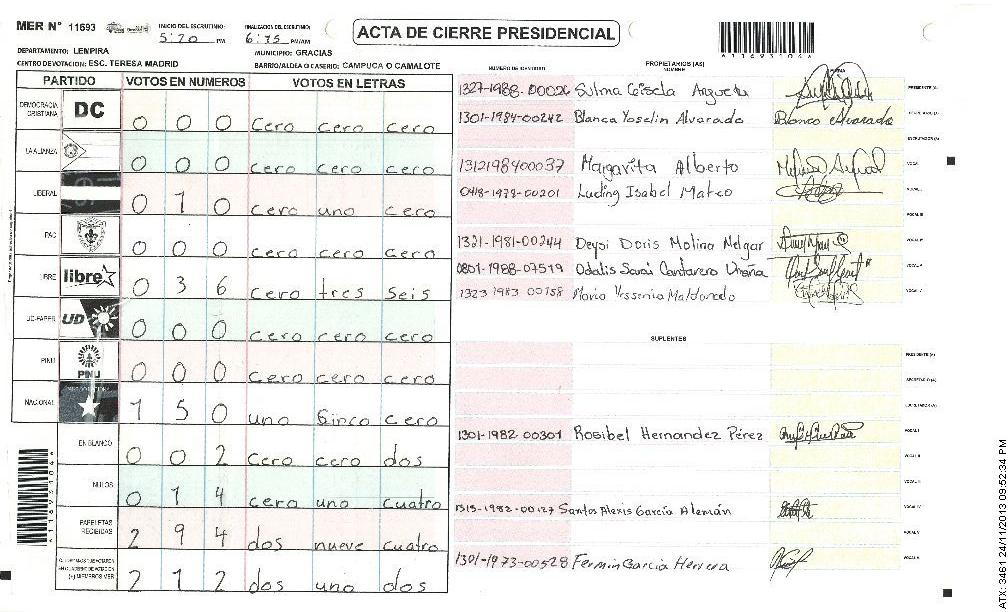 MER N° 11693
INICIO DEL ESCRUTINIO: 5:20 PM
FINALIZACION DEL ESCRUTINIO: 6:75 PM/AM
ACTA DE CIERRE PRESIDENCIAL
*11693104*
DEPARTAMENTO: LEMPIRA
MUNICIPIO: GRACIAS
CENTRO DE VOTACION: ESC. TERESA MADRID
BARRIO/ALDEA O CASERIO: CAMPUCA O CAMALOTE
PARTIDO VOTOS EN NUMEROS VOTOS EN LETRAS
DEMOCRACIA CRISTIANA DC 0 0 0 cero cero cero
LA ALIANZA 0 0 0 cero cero cero
LIBERAL 0 1 0 cero uno cero
PAC 0 0 0 cero cero cero
LIBRE libre 0 3 6 cero tres seis
UD-FAPER UD 0 0 0 cero cero cero
PINU PINU 0 0 0 cero cero cero
NACIONAL 1 5 0 uno sinco cero
EN BLANCO 0 0 2 cero cero dos
NULOS 0 1 4 cero uno cuatro
PAPELETAS RECIBIDAS 2 9 4 dos nueve cuatro
(+) MIEMBROS MER 2 1 2 dos uno dos
*11693104*
NUMERO DE IDENTIDAD
PROPIETARIOS (AS)
NOMBRE
FIRMA
1327-1988-00026 Sulma Gisela Argueta PRESIDENTE (A)
1301-1984-00242 Blanca Yoselin Alvarado Blanca Alvarado SECRETARIO (A)
ESCRUTADOR (A)
1312198400037 Margarita Alberto VOCAL I
0418-1978-00201 Luding Isabel Mateo VOCAL II
VOCAL III
1321-1981-00244 Deysi Doris Molina Melgar VOCAL IV
0801-1988-07519 Odalis Sarai Cantarero Urania VOCAL V
1323 1983 00158 Maria Yessenia Maldonado
SUPLENTES
PRESIDENTE (A)
SECRETARIO (A)
ESCRUTADOR (A)
1301-1982-00301 Rosibel Hernandez Pérez VOCAL I
VOCAL II
VOCAL III
1315-1982-00127 Santos Alexis García Alemán VOCAL IV
VOCAL V
1301-1973-00528 Fermin Garcia Herrera
ATX: 3461 24/11/2013 09:52:34 PM